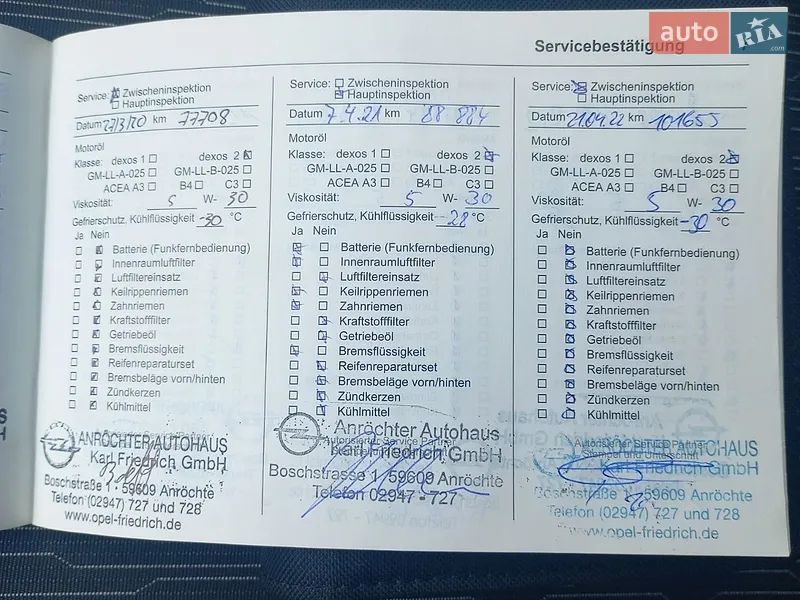 auto RIA .com
Servicebestätigung
Service: Zwischeninspektion
Hauptinspektion
Datum 27/3/20 km 77708
Motoröl
Klasse: dexos 1 dexos 2
GM-LL-A-025 GM-LL-B-025
ACEA A3 B4 C3
Viskosität: 5 W- 30
Gefrierschutz, Kühlflüssigkeit -30 °C
Ja Nein
Batterie (Funkfernbedienung)
Innenraumluftfilter
Luftfiltereinsatz
Keilrippenriemen
Zahnriemen
Kraftstofffilter
Getriebeöl
Bremsflüssigkeit
Reifenreparaturset
Bremsbeläge vorn/hinten
Zündkerzen
Kühlmittel
ANRÖCHTER AUTOHAUS
Karl Friedrich GmbH
Boschstraße 1 · 59609 Anröchte
Telefon (02947) 727 und 728
www.opel-friedrich.de
Service: Zwischeninspektion
Hauptinspektion
Datum 7.4.21 km 88 884
Motoröl
Klasse: dexos 1 dexos 2
GM-LL-A-025 GM-LL-B-025
ACEA A3 B4 C3
Viskosität: 5 W- 30
Gefrierschutz, Kühlflüssigkeit -28 °C
Ja Nein
Batterie (Funkfernbedienung)
Innenraumluftfilter
Luftfiltereinsatz
Keilrippenriemen
Zahnriemen
Kraftstofffilter
Getriebeöl
Bremsflüssigkeit
Reifenreparaturset
Bremsbeläge vorn/hinten
Zündkerzen
Kühlmittel
Anröchter Autohaus
Autorisierter Service Partner
Karl Friedrich GmbH
Boschstraße 1 · 59609 Anröchte
Telefon 02947 - 727
Service: Zwischeninspektion
Hauptinspektion
Datum 21.04.22 km 101655
Motoröl
Klasse: dexos 1 dexos 2
GM-LL-A-025 GM-LL-B-025
ACEA A3 B4 C3
Viskosität: 5 W- 30
Gefrierschutz, Kühlflüssigkeit -30 °C
Ja Nein
Batterie (Funkfernbedienung)
Innenraumluftfilter
Luftfiltereinsatz
Keilrippenriemen
Zahnriemen
Kraftstofffilter
Getriebeöl
Bremsflüssigkeit
Reifenreparaturset
Bremsbeläge vorn/hinten
Zündkerzen
Kühlmittel
Autorisierter Service Partner
AUTOHAUS
Stempel und Unterschrift
Karl Friedrich GmbH
Boschstraße 59609 Anröchte
Telefon (02947) 727 und 728
www.opel-friedrich.de